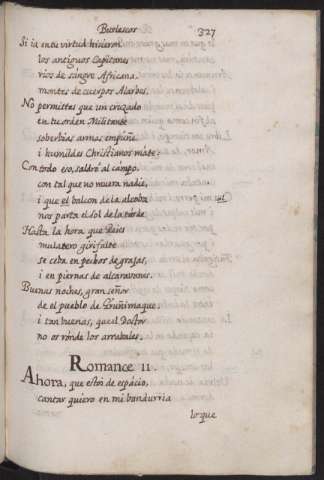 Burlescos 327
Si ia en tu virtud hicieron
los antiguos Capitanes
rios de sangre Africana,
montes de cuerpos Alarbes,
No permittas que un cruzado
en tu orden Militante
soberbias armas empuñe
i humildes Christianos mate:
Con todo eso, saldré al campo,
con tal que no muera nadie,
i que el balcon de la alcoba
nos parta el sol de la tarde
Hasta la hora que
mulatero girifalte
se ceba en pechos de grajas,
i en piernas de alcaravanes.
Buenas noches, gran señor
de el pueblo de Gruñimaque,
i tan buenas, que el Doctor
no os ronde los arrabales.
Romance 11.
Ahora, que estoi de espacio,
cantar quiero en mi bandurria
lo que